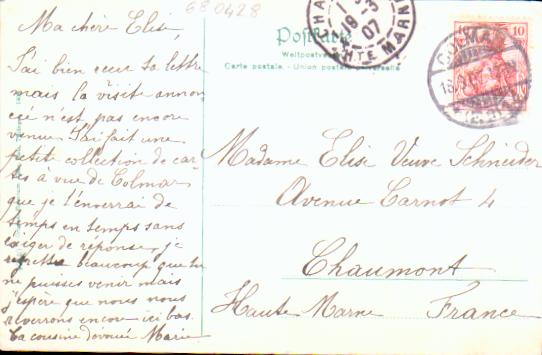 680428
Ma chère Elise,
J'ai bien reçu ta lettre
mais la visite annon
cée n'est pas encore
venue. J'ai fait une
petite collection de car
tes à vue de Colmar
que je t'enverrai de
temps en temps sans
exiger de réponse, je
regrette beaucoup que tu
ne puisses venir mais
j'espère que nous nous
reverrons encore ici bas.
Ta cousine dévouée Marie
Postkarte
Weltpostverein
Carte postale. - Union postale universelle
CHA
18-3
07
HTE MARNE
COLMAR
10
Madame Elise Veuve Schneider
Avenue Carnot 4
Chaumont
Haute Marne France